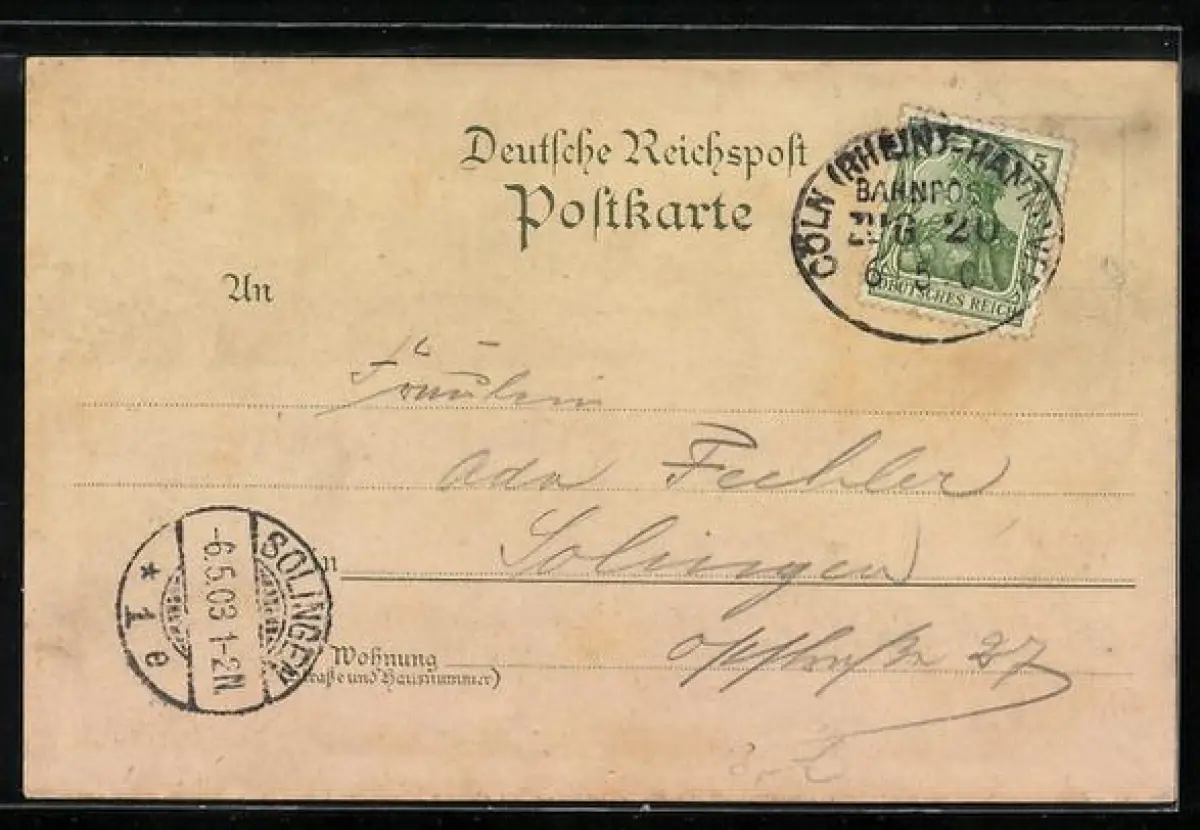 Deutsche Reichspost
Postkarte
CÖLN (RHEIN)-HANNOVER
BAHNPOST
ZUG 20
6 5 0
5
DEUTSCHES REICH
An
Fräulein
Ada Fechler
in Solingen
SOLINGEN
-6.5.03 1-2N.
* 1 e
Wohnung 27
(Straße und Hausnummer)